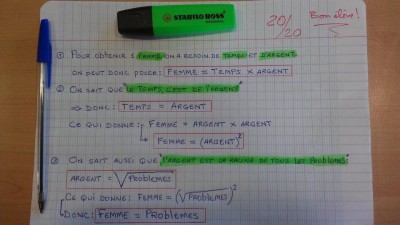 STABILO BOSS
20/20
Bon élève!
① Pour obtenir 1 femme on a besoin de temps et d'argent
on peut donc poser: Femme = Temps x argent
② On sait que "le temps, c'est de l'argent"
⇒ Donc: Temps = Argent
Ce qui donne: Femme = argent x argent
↳ Femme = (argent)²
③ On sait aussi que "l'argent est la racine de tous les problèmes"
Argent = √Problèmes
Ce qui donne: Femme = (√Problèmes)²
↳ Donc: Femme = Problèmes